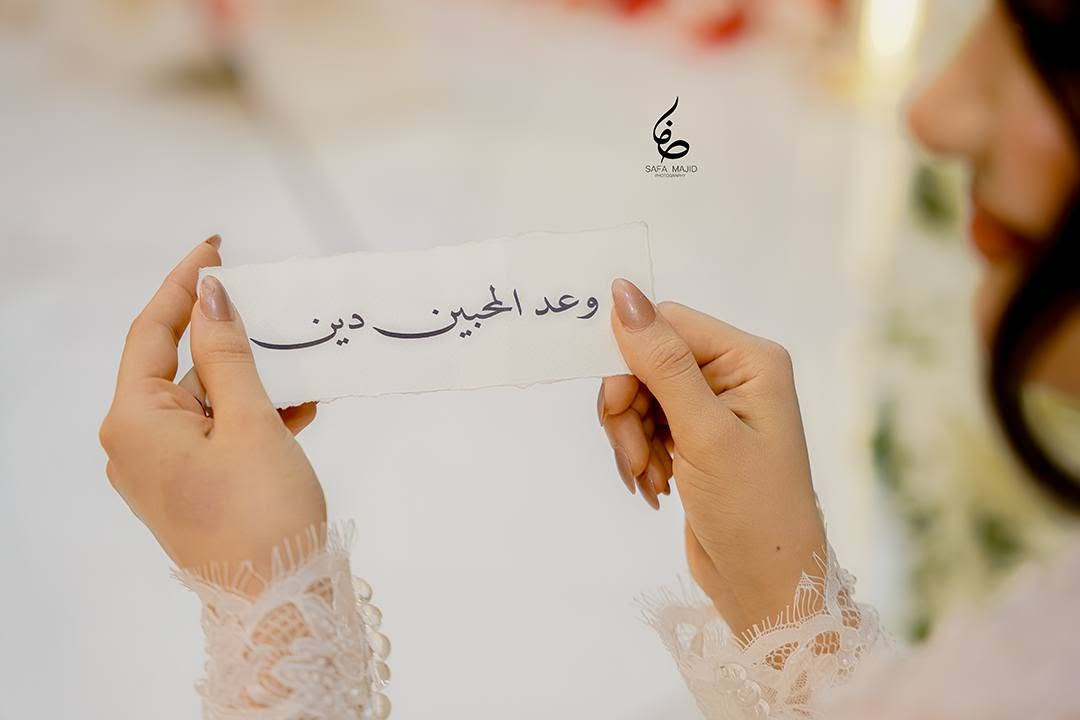 صفا
SAFA MAJID
PHOTOGRAPHY
وعد المحبين دين